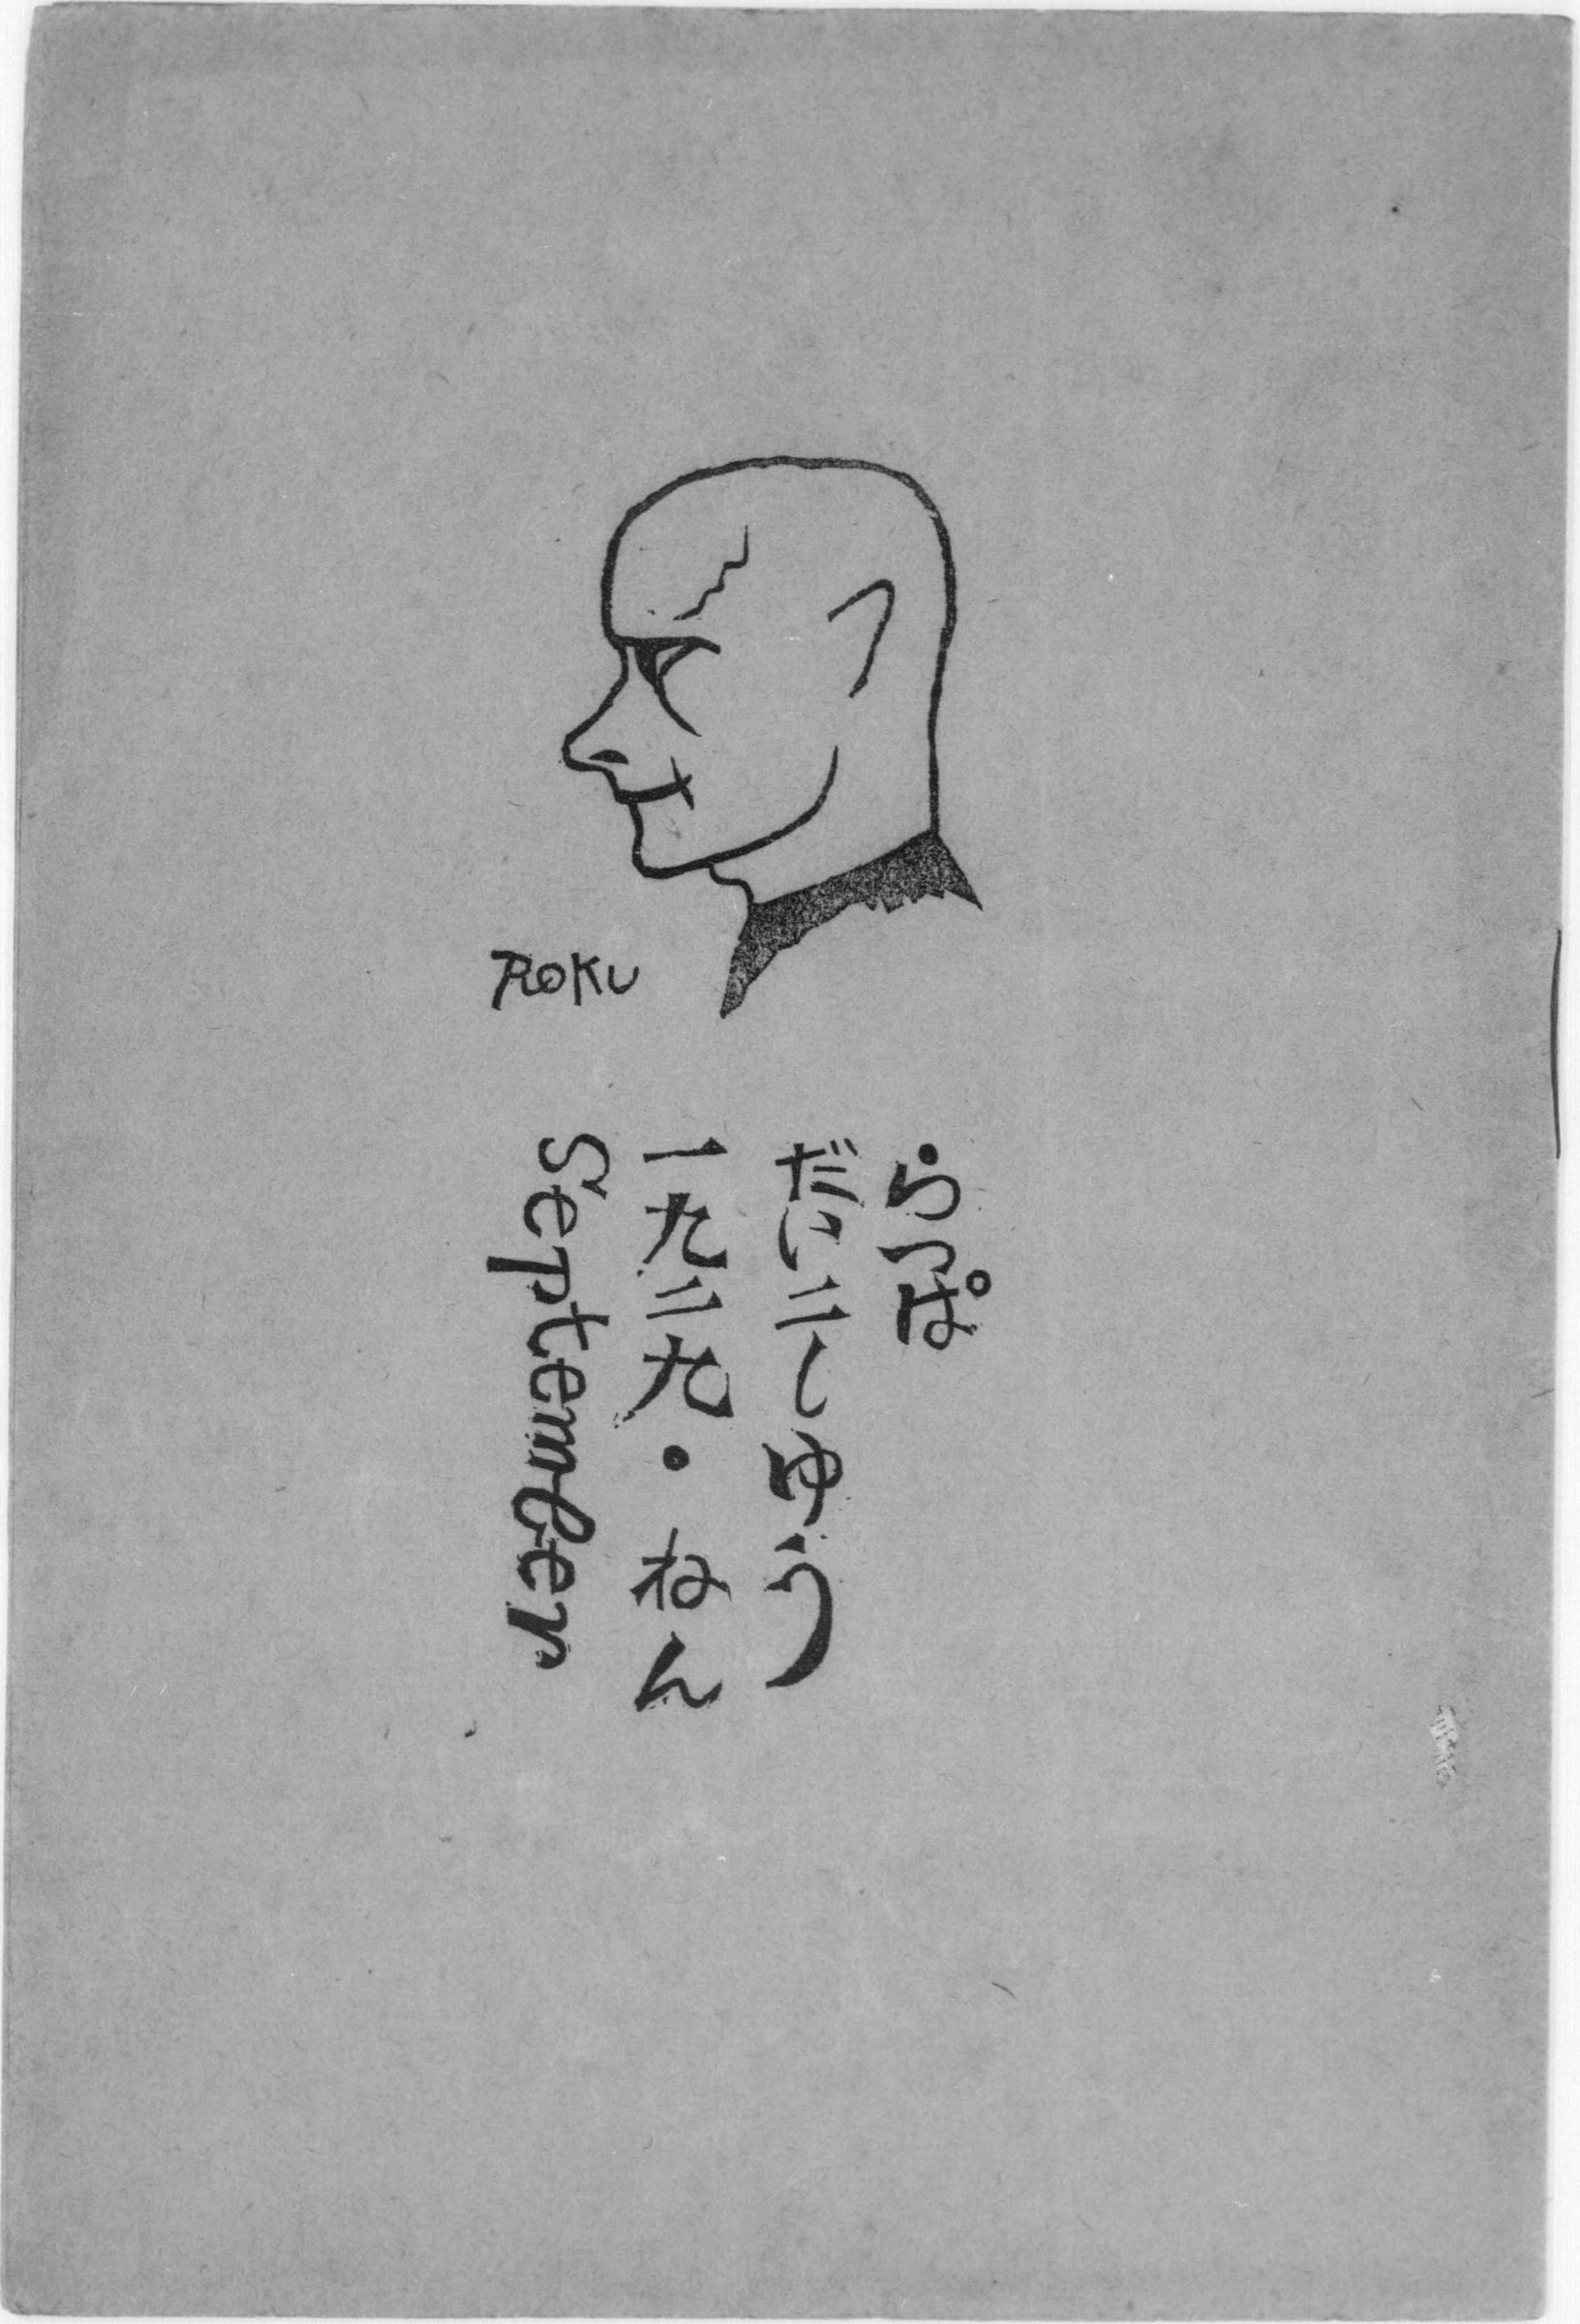 ROKU
らっぱ
だい二しゆう
一九二九・ねん
September